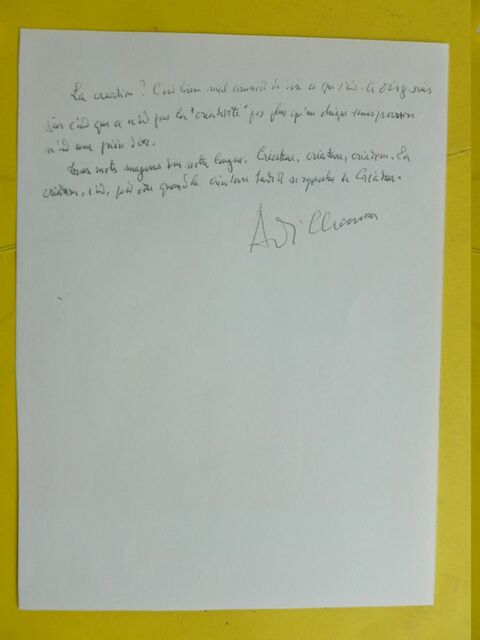 La création ? C'est bien mal commode de dire ce qu'est. Ce dont je suis
sûr c'est que ce n'est pas la "créativité" pas plus qu'un chèque sans provision
n'est une pièce d'or.
Trois mots majeurs dans notre langue. Créateur, créature, création. La
création, c'est, peut-être quand la créature tend à se rapprocher du Créateur.